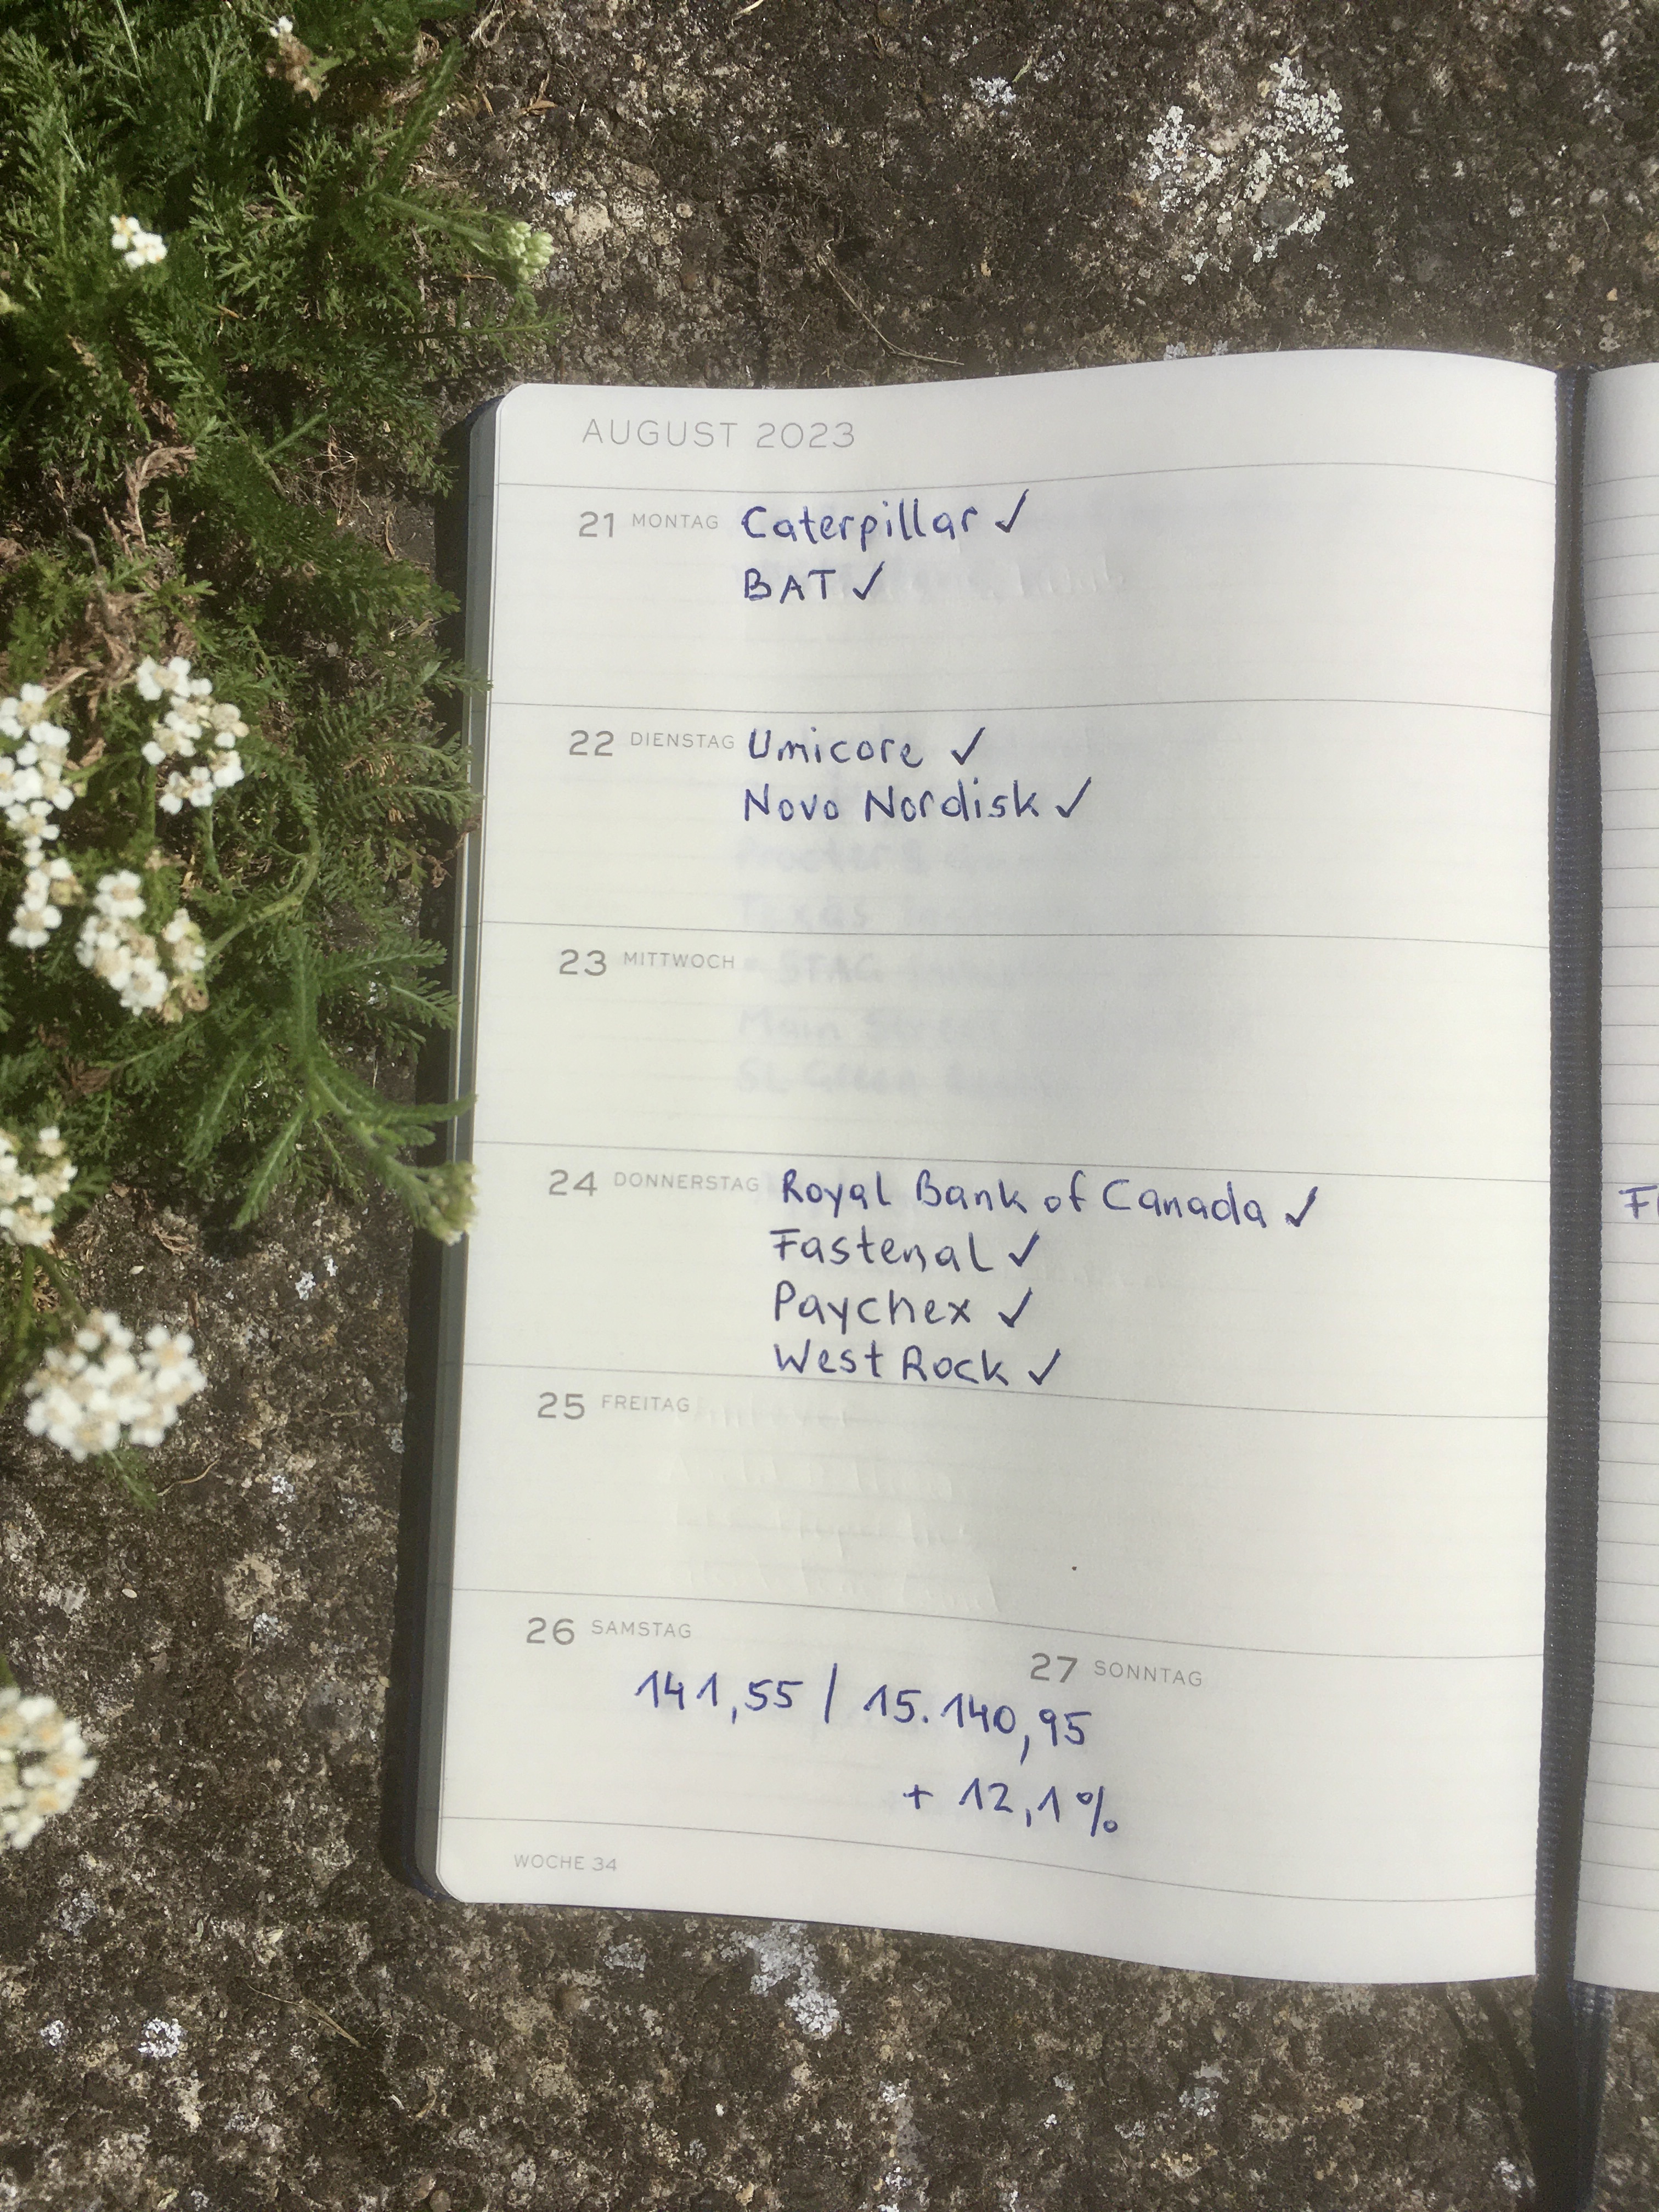 AUGUST 2023
21 MONTAG Caterpillar ✓
BAT ✓
22 DIENSTAG Umicore ✓
Novo Nordisk ✓
23 MITTWOCH
24 DONNERSTAG Royal Bank of Canada ✓
Fastenal ✓
Paychex ✓
West Rock ✓
25 FREITAG
26 SAMSTAG
27 SONNTAG
141,55 / 15.140,95
+ 12,1%
WOCHE 34